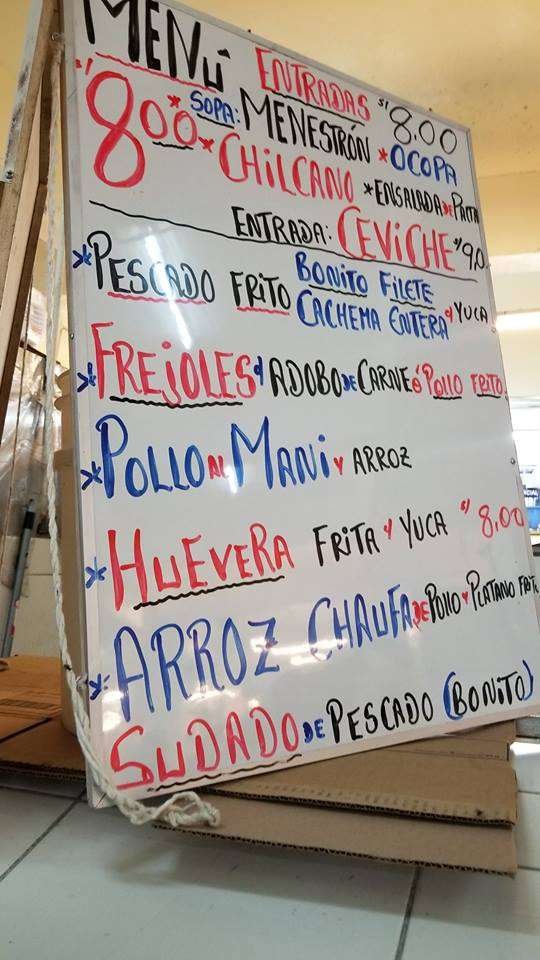 MENÚ ENTRADAS S/8.00
S/800 * SOPA: MENESTRÓN * OCOPA
* CHILCANO * ENSALADA DE PALTA
ENTRADA: CEVICHE S/9.0
* PESCADO FRITO BONITO FILETE
CACHEMA ENTERA Y YUCA
* FREJOLES Y ADOBO DE CARNE Ó POLLO FRITO
* POLLO AL MANI Y ARROZ
* HUEVERA FRITA Y YUCA S/8.00
* ARROZ CHAUFA DE POLLO Y PLATANO FRITO
SUDADO DE PESCADO (BONITO)